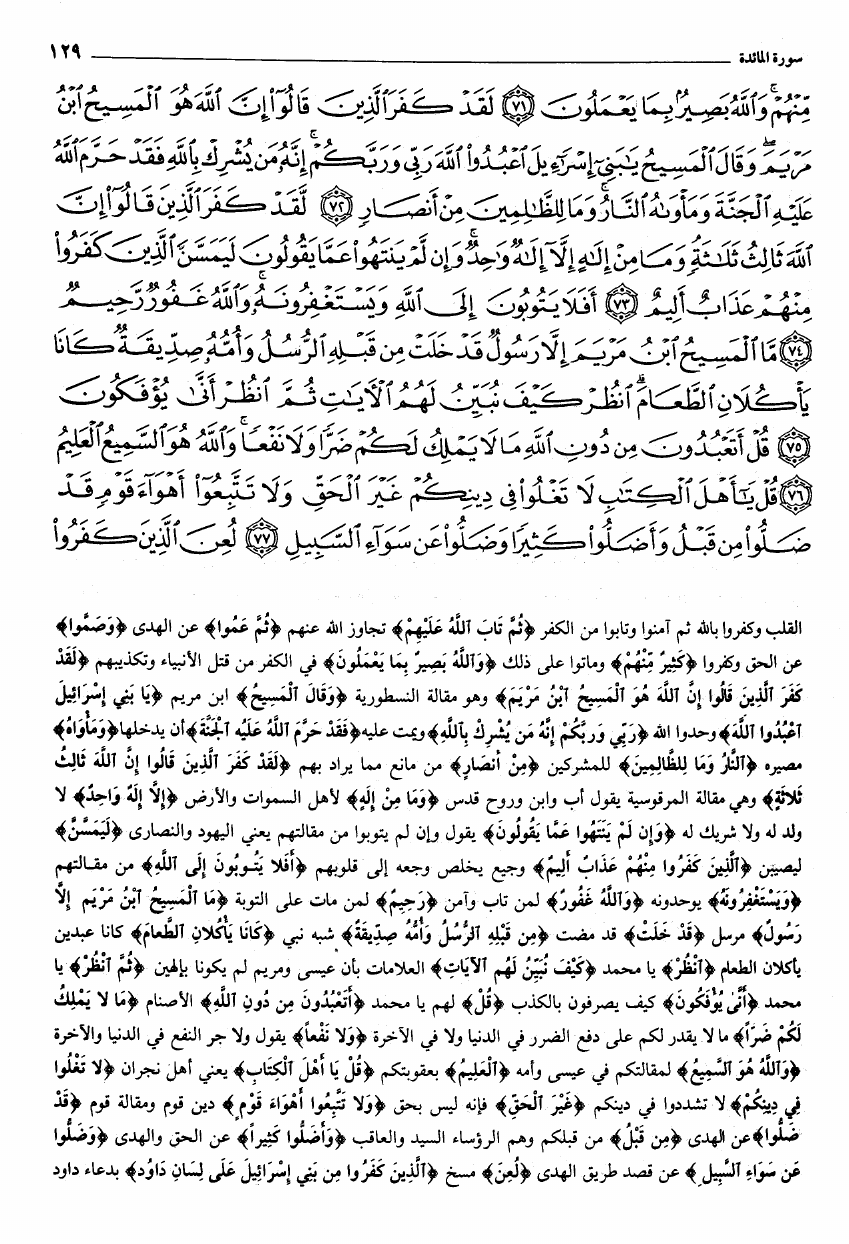 سورة المائدة ١٢٩
مِّنْهُمْ ۚ وَٱللَّهُ بَصِيرٌۢ بِمَا يَعْمَلُونَ ﴿٧١﴾ لَقَدْ كَفَرَ ٱلَّذِينَ قَالُوٓا۟ إِنَّ ٱللَّهَ هُوَ ٱلْمَسِيحُ ٱبْنُ
مَرْيَمَ ۖ وَقَالَ ٱلْمَسِيحُ يَـٰبَنِىٓ إِسْرَٰٓءِيلَ ٱعْبُدُوا۟ ٱللَّهَ رَبِّى وَرَبَّكُمْ ۖ إِنَّهُۥ مَن يُشْرِكْ بِٱللَّهِ فَقَدْ حَرَّمَ ٱللَّهُ
عَلَيْهِ ٱلْجَنَّةَ وَمَأْوَىٰهُ ٱلنَّارُ ۖ وَمَا لِلظَّـٰلِمِينَ مِنْ أَنصَارٍ ﴿٧٢﴾ لَّقَدْ كَفَرَ ٱلَّذِينَ قَالُوٓا۟ إِنَّ
ٱللَّهَ ثَالِثُ ثَلَـٰثَةٍ ۘ وَمَا مِنْ إِلَـٰهٍ إِلَّآ إِلَـٰهٌ وَٰحِدٌ ۚ وَإِن لَّمْ يَنتَهُوا۟ عَمَّا يَقُولُونَ لَيَمَسَّنَّ ٱلَّذِينَ كَفَرُوا۟
مِنْهُمْ عَذَابٌ أَلِيمٌ ﴿٧٣﴾ أَفَلَا يَتُوبُونَ إِلَى ٱللَّهِ وَيَسْتَغْفِرُونَهُۥ ۚ وَٱللَّهُ غَفُورٌ رَّحِيمٌ
﴿٧٤﴾ مَّا ٱلْمَسِيحُ ٱبْنُ مَرْيَمَ إِلَّا رَسُولٌ قَدْ خَلَتْ مِن قَبْلِهِ ٱلرُّسُلُ وَأُمُّهُۥ صِدِّيقَةٌ ۖ كَانَا
يَأْكُلَانِ ٱلطَّعَامَ ۗ ٱنظُرْ كَيْفَ نُبَيِّنُ لَهُمُ ٱلْـَٔايَـٰتِ ثُمَّ ٱنظُرْ أَنَّىٰ يُؤْفَكُونَ
﴿٧٥﴾ قُلْ أَتَعْبُدُونَ مِن دُونِ ٱللَّهِ مَا لَا يَمْلِكُ لَكُمْ ضَرًّا وَلَا نَفْعًا ۚ وَٱللَّهُ هُوَ ٱلسَّمِيعُ ٱلْعَلِيمُ
﴿٧٦﴾ قُلْ يَـٰٓأَهْلَ ٱلْكِتَـٰبِ لَا تَغْلُوا۟ فِى دِينِكُمْ غَيْرَ ٱلْحَقِّ وَلَا تَتَّبِعُوٓا۟ أَهْوَآءَ قَوْمٍ قَدْ
ضَلُّوا۟ مِن قَبْلُ وَأَضَلُّوا۟ كَثِيرًا وَضَلُّوا۟ عَن سَوَآءِ ٱلسَّبِيلِ ﴿٧٧﴾ لُعِنَ ٱلَّذِينَ كَفَرُوا۟
القلب وكفروا بالله ثم آمنوا وتابوا من الكفر ﴿ثُمَّ تَابَ ٱللَّهُ عَلَيْهِمْ﴾ تجاوز الله عنهم ﴿ثُمَّ عَمُوا﴾ عن الهدى ﴿وَصَمُّوا﴾
عن الحق وكفروا ﴿كَثِيرٌ مِنْهُمْ﴾ وماتوا على ذلك ﴿وَٱللَّهُ بَصِيرٌ بِمَا يَعْمَلُونَ﴾ في الكفر من قتل الأنبياء وتكذيبهم ﴿لَقَدْ
كَفَرَ ٱلَّذِينَ قَالُوا إِنَّ ٱللَّهَ هُوَ ٱلْمَسِيحُ ٱبْنُ مَرْيَمَ﴾ وهو مقالة النسطورية ﴿وَقَالَ ٱلْمَسِيحُ﴾ ابن مريم ﴿يَا بَنِي إِسْرَائِيلَ
ٱعْبُدُوا ٱللَّهَ﴾ وحدوا الله ﴿رَبِّي وَرَبَّكُمْ إِنَّهُ مَن يُشْرِكْ بِٱللَّهِ﴾ ويمت عليه ﴿فَقَدْ حَرَّمَ ٱللَّهُ عَلَيْهِ ٱلْجَنَّةَ﴾ أن يدخلها ﴿وَمَأْوَاهُ﴾
مصيره ﴿ٱلنَّارُ وَمَا لِلظَّالِمِينَ﴾ للمشركين ﴿مِنْ أَنصَارٍ﴾ من مانع مما يراد بهم ﴿لَقَدْ كَفَرَ ٱلَّذِينَ قَالُوا إِنَّ ٱللَّهَ ثَالِثُ
ثَلاثَةٍ﴾ وهي مقالة المرقوسية يقول أب وابن وروح قدس ﴿وَمَا مِنْ إِلَهٍ﴾ لأهل السموات والأرض ﴿إِلَّا إِلَهٌ وَاحِدٌ﴾ لا
ولد له ولا شريك له ﴿وَإِن لَمْ يَنتَهُوا عَمَّا يَقُولُونَ﴾ يقول وإن لم يتوبوا من مقالتهم يعني اليهود والنصارى ﴿لَيَمَسَّنَّ﴾
ليصيبن ﴿ٱلَّذِينَ كَفَرُوا مِنْهُمْ عَذَابٌ أَلِيمٌ﴾ وجيع يخلص وجعه إلى قلوبهم ﴿أَفَلا يَتُوبُونَ إِلَى ٱللَّهِ﴾ من مقالتهم
﴿وَيَسْتَغْفِرُونَهُ﴾ يوحدونه ﴿وَٱللَّهُ غَفُورٌ﴾ لمن تاب وآمن ﴿رَحِيمٌ﴾ لمن مات على التوبة ﴿مَا ٱلْمَسِيحُ ٱبْنُ مَرْيَمَ إِلَّا
رَسُولٌ﴾ مرسل ﴿قَدْ خَلَتْ﴾ قد مضت ﴿مِن قَبْلِهِ ٱلرُّسُلُ وَأُمُّهُ صِدِّيقَةٌ﴾ شبه نبي ﴿كَانَا يَأْكُلانِ ٱلطَّعَامَ﴾ كانا عبدين
يأكلان الطعام ﴿ٱنْظُرْ﴾ يا محمد ﴿كَيْفَ نُبَيِّنُ لَهُمُ ٱلآيَاتِ﴾ العلامات بأن عيسى ومريم لم يكونا بإلهين ﴿ثُمَّ ٱنْظُرْ﴾ يا
محمد ﴿أَنَّى يُؤْفَكُونَ﴾ كيف يصرفون بالكذب ﴿قُلْ﴾ لهم يا محمد ﴿أَتَعْبُدُونَ مِن دُونِ ٱللَّهِ﴾ الأصنام ﴿مَا لا يَمْلِكُ
لَكُمْ ضَرًّا﴾ ما لا يقدر لكم على دفع الضرر في الدنيا ولا في الآخرة ﴿وَلا نَفْعاً﴾ يقول ولا جر النفع في الدنيا والآخرة
﴿وَٱللَّهُ هُوَ ٱلسَّمِيعُ﴾ لمقالتكم في عيسى وأمه ﴿ٱلْعَلِيمُ﴾ بعقوبتكم ﴿قُلْ يَا أَهْلَ ٱلْكِتَابِ﴾ يعني أهل نجران ﴿لا تَغْلُوا
فِي دِينِكُمْ﴾ لا تشددوا في دينكم ﴿غَيْرَ ٱلْحَقِّ﴾ فإنه ليس بحق ﴿وَلا تَتَّبِعُوا أَهْوَاءَ قَوْمٍ﴾ دين قوم ومقالة قوم ﴿قَدْ
ضَلُّوا﴾ عن الهدى ﴿مِن قَبْلُ﴾ من قبلكم وهم الرؤساء السيد والعاقب ﴿وَأَضَلُّوا كَثِيراً﴾ عن الحق والهدى ﴿وَضَلُّوا
عَن سَوَاءِ ٱلسَّبِيلِ﴾ عن قصد طريق الهدى ﴿لُعِنَ﴾ مسخ ﴿ٱلَّذِينَ كَفَرُوا مِن بَنِي إِسْرَائِيلَ عَلَى لِسَانِ دَاوُد﴾ بدعاء داود